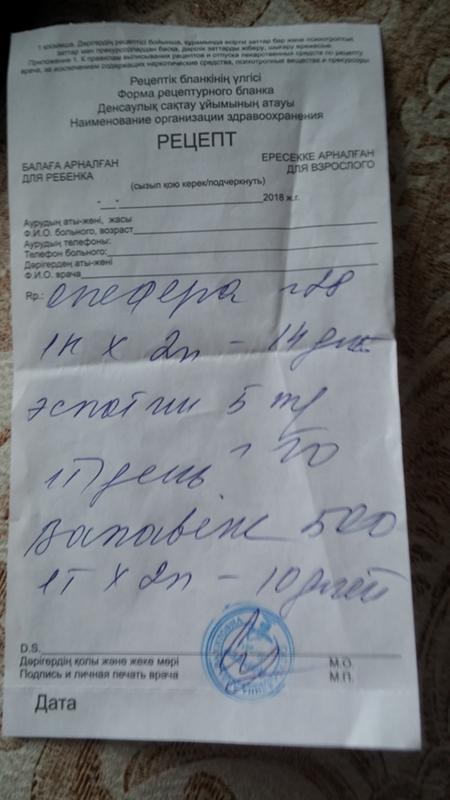 1 қосымша. Дәрігердің рецептісі бойынша, құрамында есірткі заттар бар және психотроптық
заттар мен прекурсорлардан басқа, дәрілік заттарды жіберу, шығару ережесіне.
Приложение 1. К правилам выписывания рецептов и отпуска лекарственных средств по рецепту
врача, за исключением содержащих наркотические средства, психотропные вещества и прекурсоры
Рецептік бланкінің үлгісі
Форма рецептурного бланка
Денсаулық сақтау ұйымының атауы
Наименование организации здравоохранения
РЕЦЕПТ
БАЛАҒА АРНАЛҒАН ЕРЕСЕККЕ АРНАЛҒАН
ДЛЯ РЕБЕНКА ДЛЯ ВЗРОСЛОГО
(сызып қою керек/подчеркнуть)
2018 ж.г.
Аурудың аты-жөні, жасы
Ф.И.О. больного, возраст
Аурудың телефоны:
Телефон больного:
Дәрігердің аты-жөні
Ф.И.О. врача
Rp.: N28
1к х 2р - 14 дней
5 mg
1т день
500
1т х 2р - 10 дней
D.S.
Дәрігердің қолы және жеке мөрі М.О.
Подпись и личная печать врача М.П.
Дата